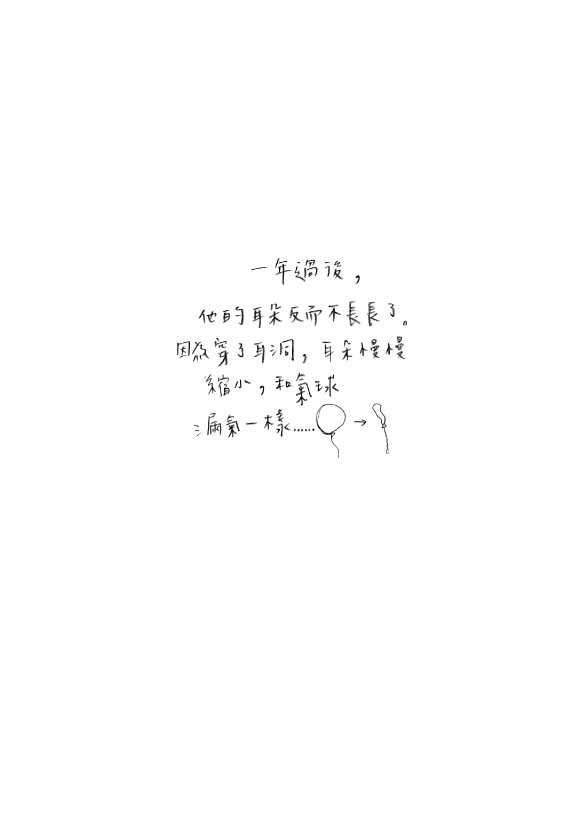 一年過後，
他的耳朵反而不長長了。
因為穿了耳洞，耳朵慢慢
縮小，和氣球
漏氣一樣……→